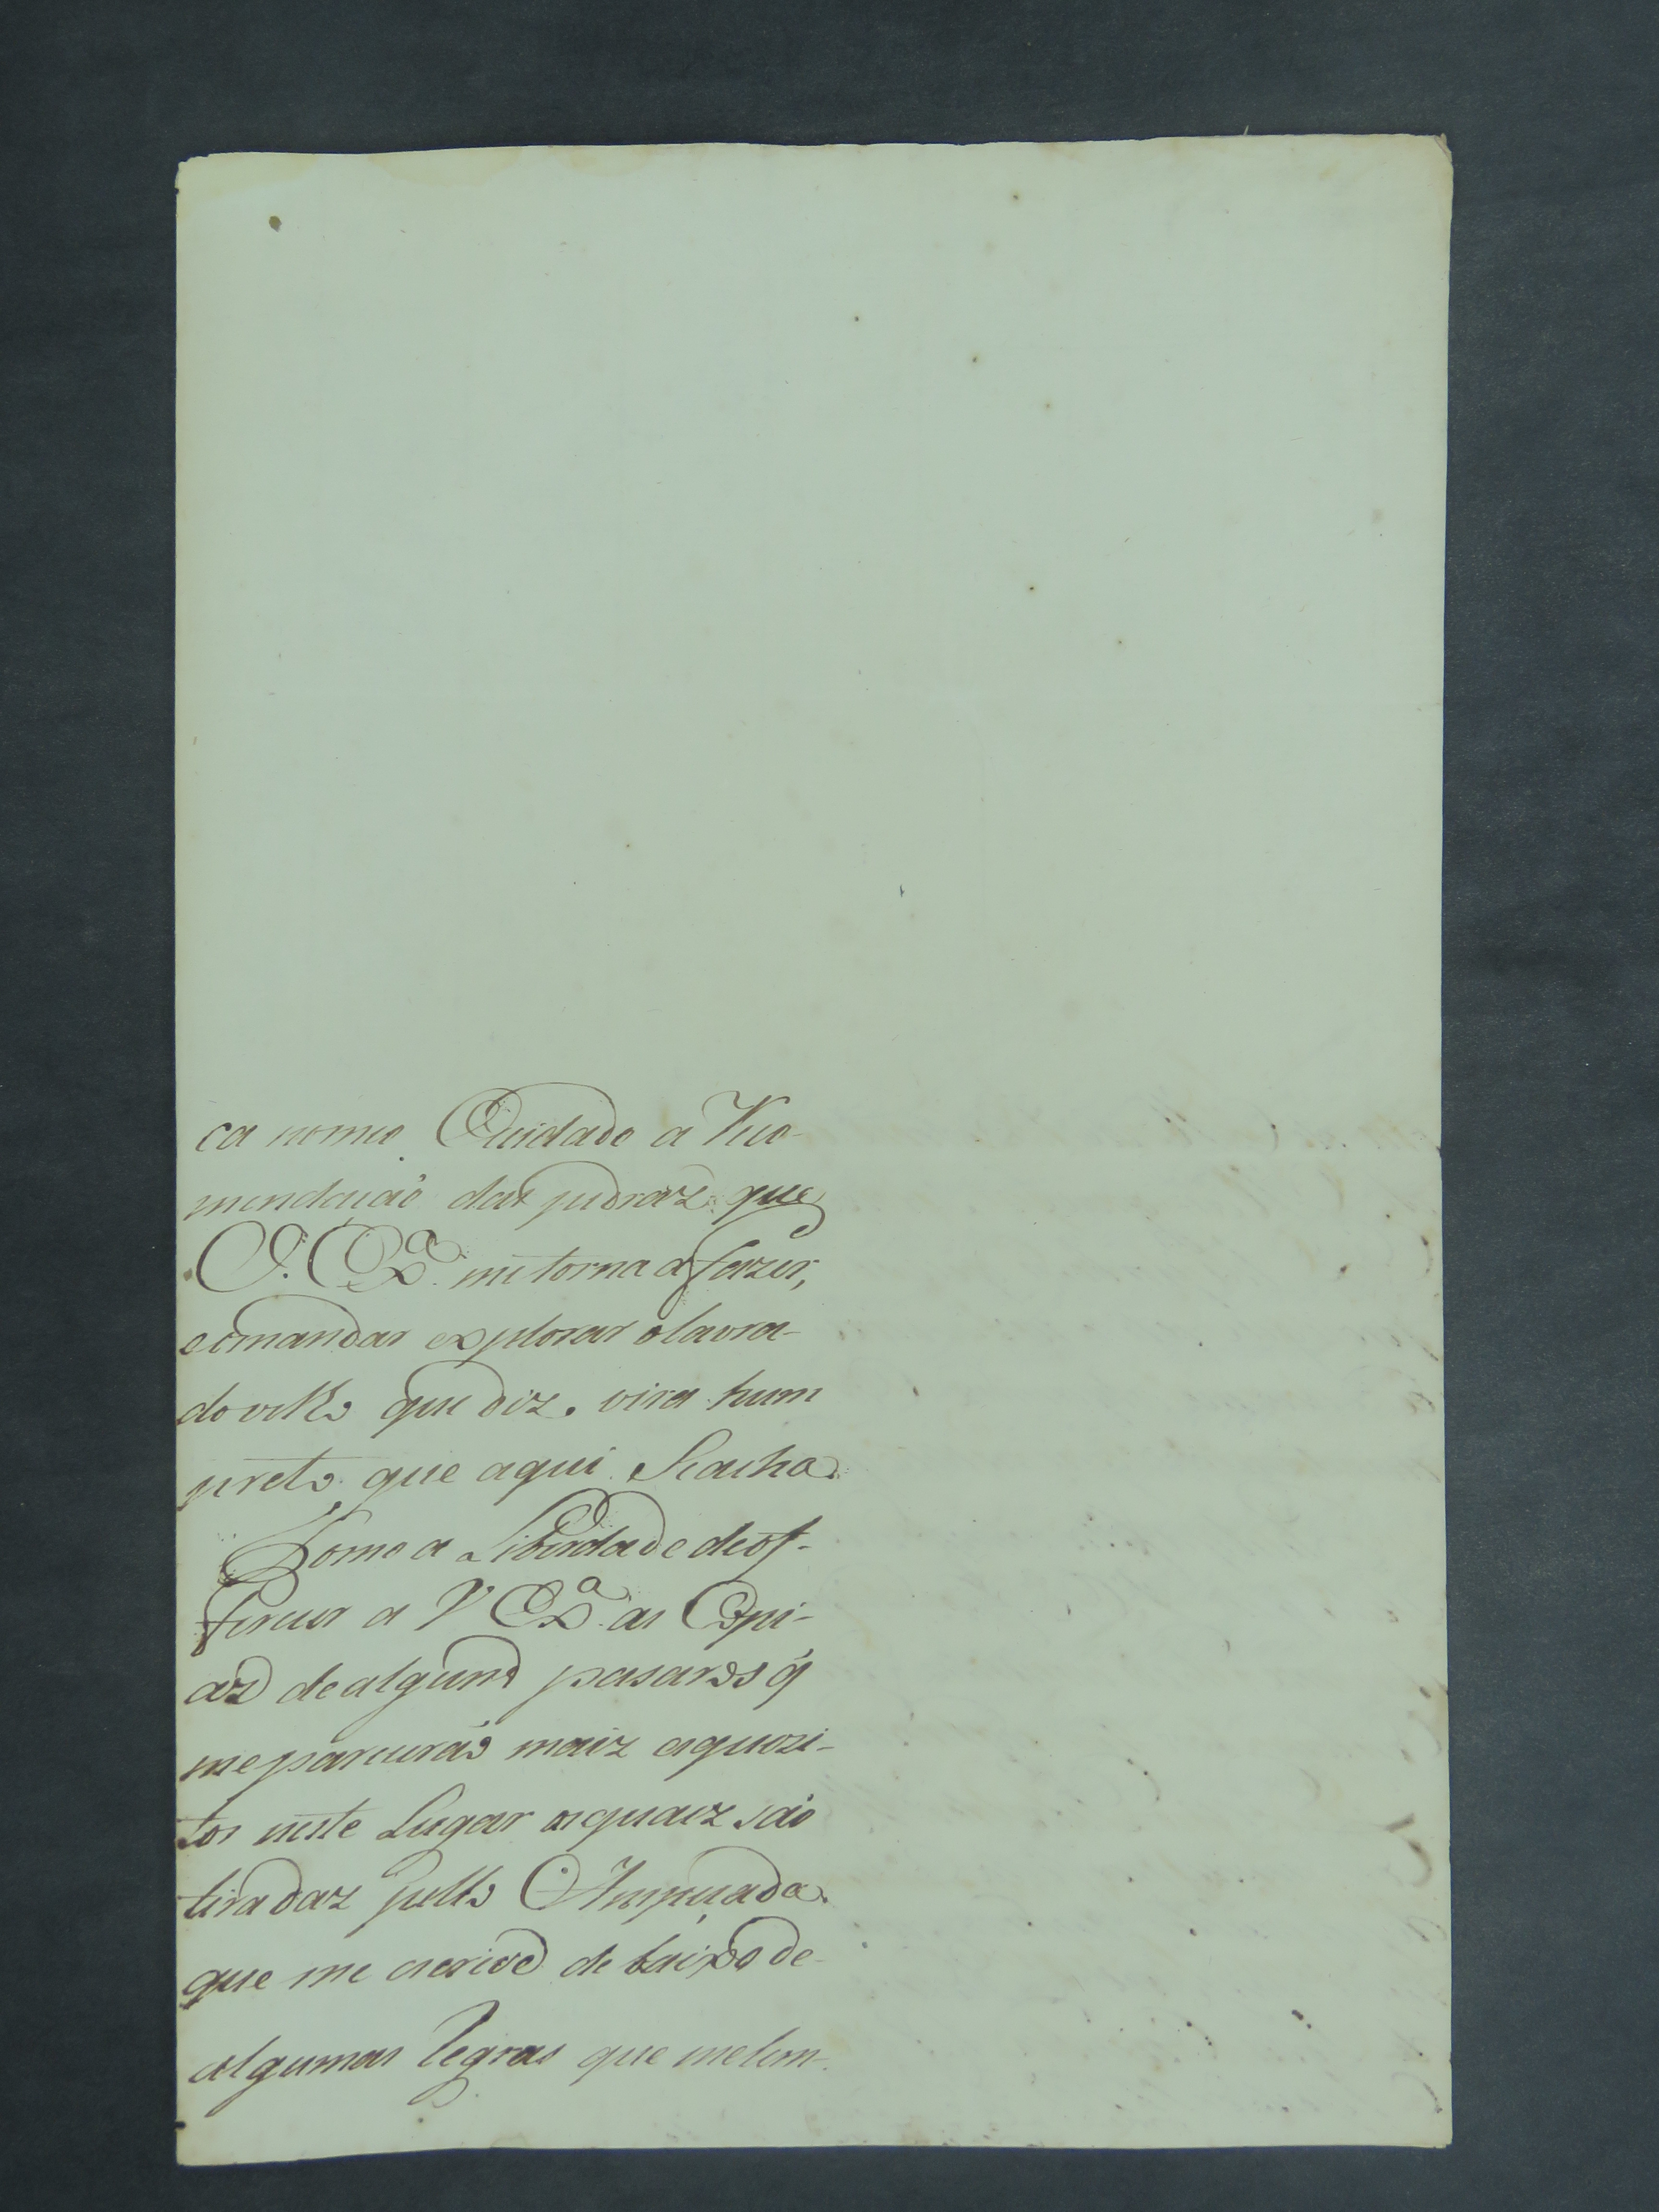 ca nomeo Cuidado a Reco-
mendaçaõ das pedraz que
V. Exª. me torna a fazer,
e o mandar explorar olavra-
do vello que diz. vira hum
preto que aqui Seacha.
Tomo a Liberdade deof-
ferecer a V Exª as Copi-
az dealguns pasaros q̃
meparecerão maiz esquezi-
tos neste Lugar osquaiz são
tiradaz pello Empuada.
que me creseve de baixo de
algumas Regras que melem-